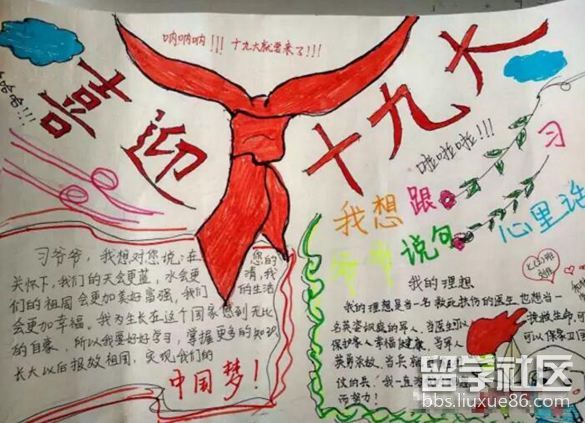 喜迎十九大
呐呐呐!!!十九大就要来了!!!
哈哈!!!
啦啦啦啦!!!
我想跟习
说句心里话
习爷爷,我想对您说:在您的
关怀下,我们的天会更蓝,水会更清,我
们的祖国会更加美好富强,我们的生活
会更加幸福。我为生长在这个国家感到无比
的自豪,所以我要好好学习,掌握更多的知识
长大以后报效祖国,实现我们的
中国梦!
我的理想
我的理想是当一名救死扶伤的医生也想当一
名英姿飒爽的军人。当医生可以
保护家人幸福健康,当军人
可以保家卫国
而努力!
留学社区
bbs.liuxue86.com